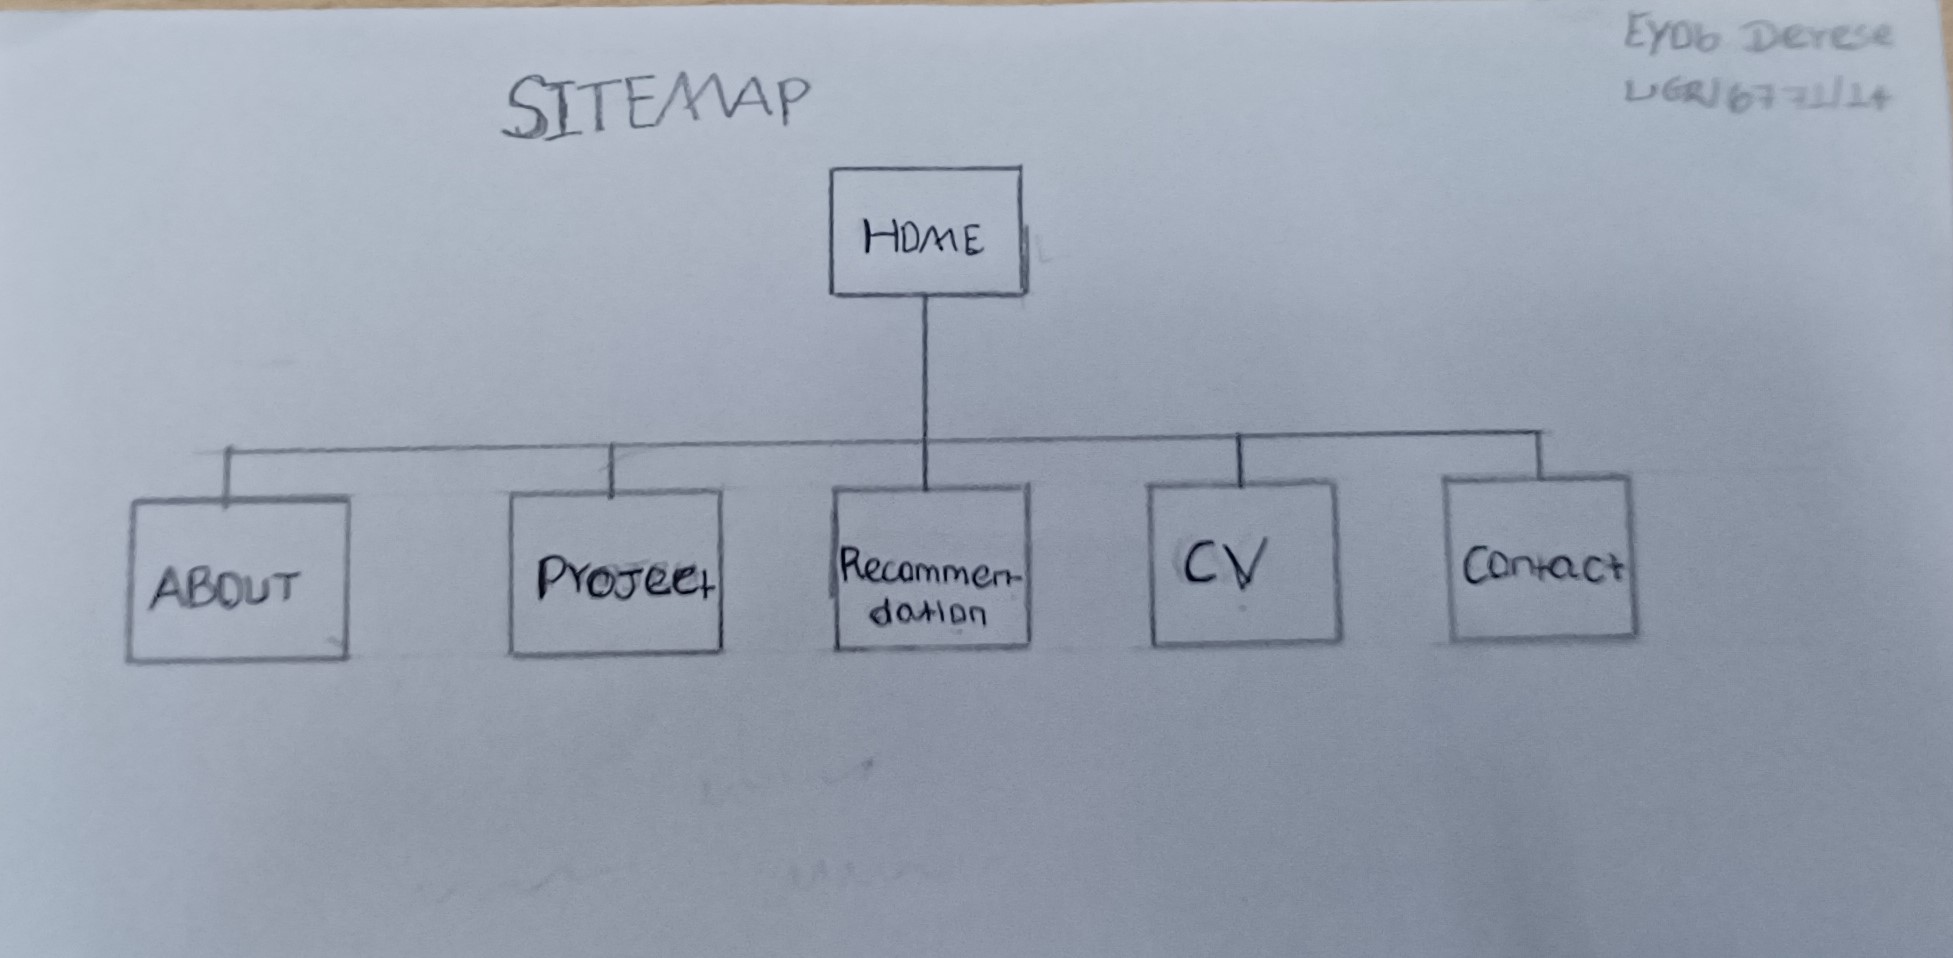 Eyob Derese
UGR/6771/14
SITEMAP
HOME
ABOUT
Project
Recommen-
dation
CV
Contact